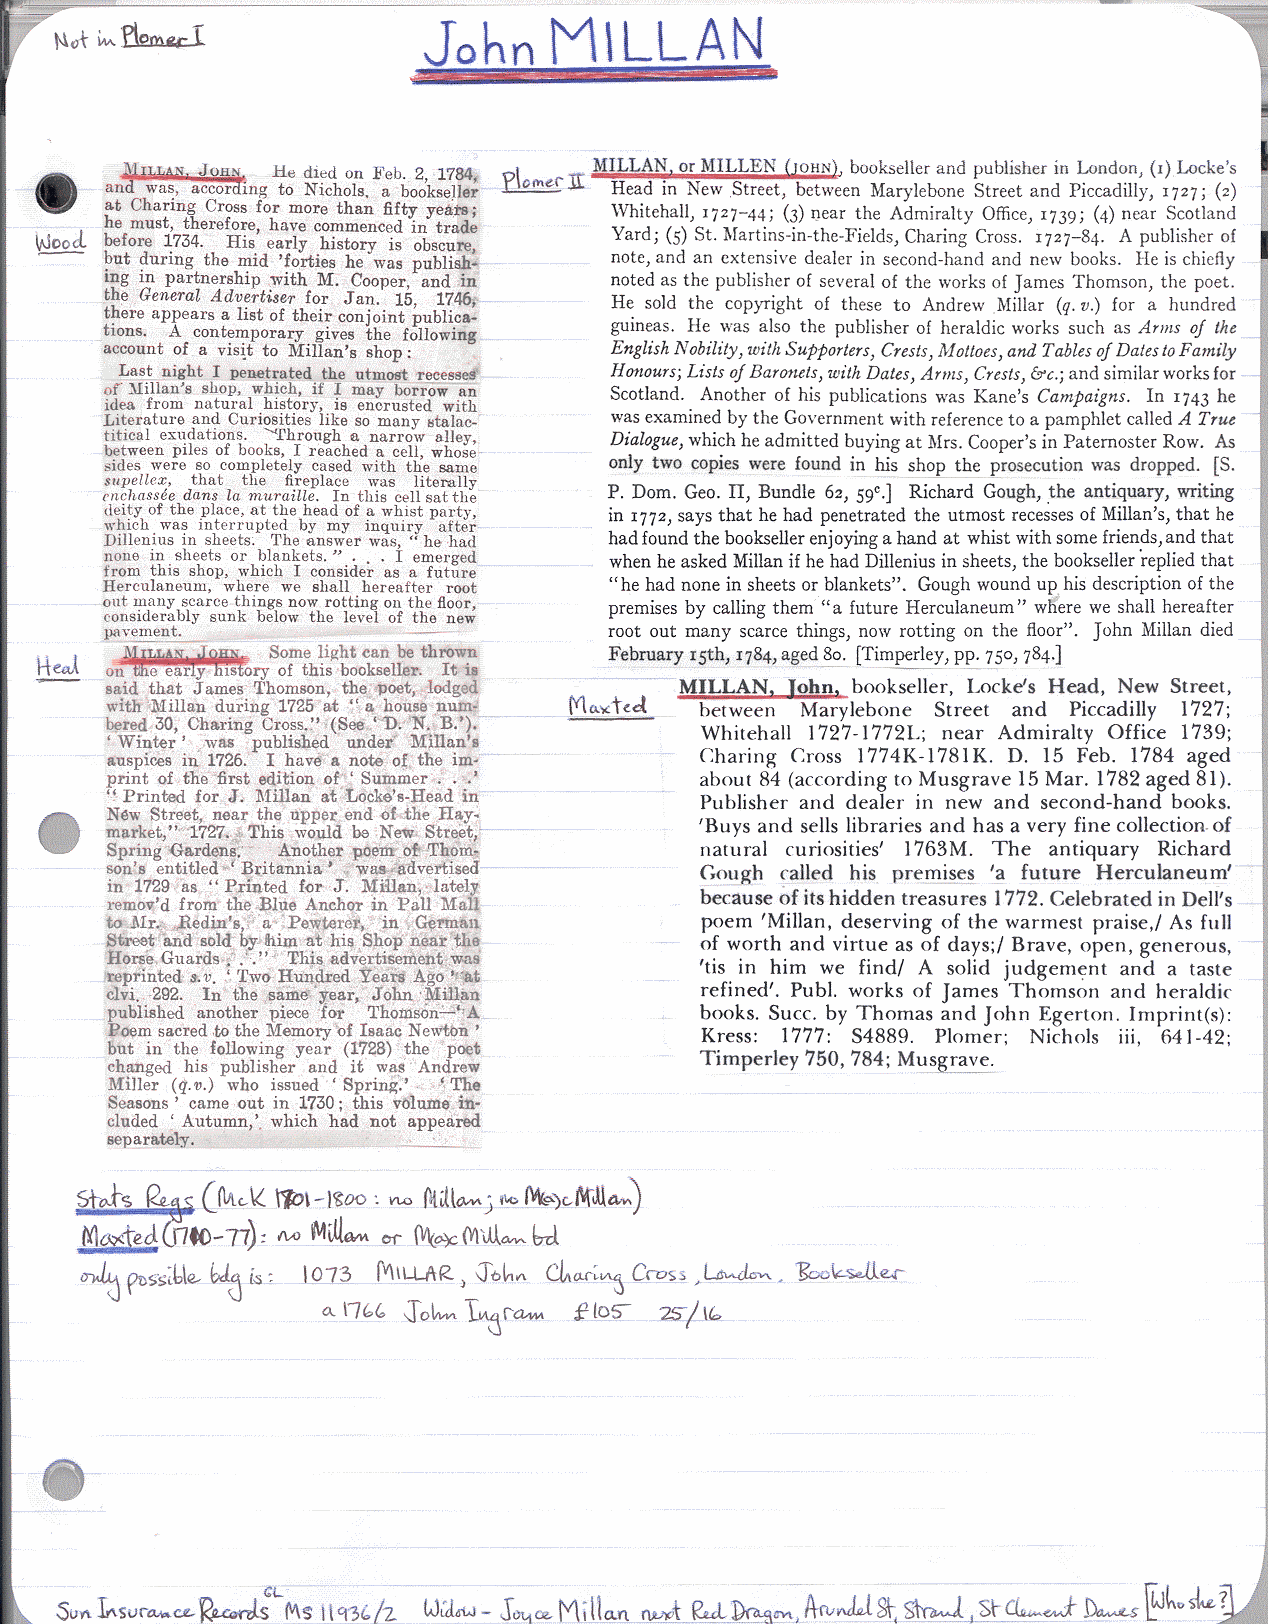 Not in Plomer I
John MILLAN
Wood
MILLAN, JOHN. He died on Feb. 2, 1784,
and was, according to Nichols, a bookseller
at Charing Cross for more than fifty years;
he must, therefore, have commenced in trade
before 1734. His early history is obscure,
but during the mid 'forties he was publish-
ing in partnership with M. Cooper, and in
the General Advertiser for Jan. 15, 1746,
there appears a list of their conjoint publica-
tions. A contemporary gives the following
account of a visit to Millan's shop:
Last night I penetrated the utmost recesses
of Millan's shop, which, if I may borrow an
idea from natural history, is encrusted with
Literature and Curiosities like so many stalac-
titical exudations. Through a narrow alley,
between piles of books, I reached a cell, whose
sides were so completely cased with the same
supellex, that the fireplace was literally
enchassée dans la muraille. In this cell sat the
deity of the place, at the head of a whist party,
which was interrupted by my inquiry after
Dillenius in sheets. The answer was, "he had
none in sheets or blankets." . . . I emerged
from this shop, which I consider as a future
Herculaneum, where we shall hereafter root
out many scarce things now rotting on the floor,
considerably sunk below the level of the new
pavement.
Heal
MILLAN, JOHN. Some light can be thrown
on the early history of this bookseller. It is
said that James Thomson, the poet, lodged
with Millan during 1725 at "a house num-
bered 30, Charing Cross." (See 'D. N. B.').
'Winter' was published under Millan's
auspices in 1726. I have a note of the im-
print of the first edition of 'Summer . . .'
"Printed for J. Millan at Locke's-Head in
New Street, near the upper end of the Hay-
market," 1727. This would be New Street,
Spring Gardens. Another poem of Thom-
son's entitled 'Britannia' was advertised
in 1729 as "Printed for J. Millan, lately
remov'd from the Blue Anchor in Pall Mall
to Mr. Redin's, a Pewterer, in German
Street and sold by him at his Shop near the
Horse Guards . . ." This advertisement was
reprinted s.v. 'Two Hundred Years Ago' at
clvi. 292. In the same year, John Millan
published another piece for Thomson—'A
Poem sacred to the Memory of Isaac Newton'
but in the following year (1728) the poet
changed his publisher and it was Andrew
Miller (q.v.) who issued 'Spring.' 'The
Seasons' came out in 1730; this volume in-
cluded 'Autumn,' which had not appeared
separately.
Plomer II
MILLAN, or MILLEN (JOHN), bookseller and publisher in London, (1) Locke's
Head in New Street, between Marylebone Street and Piccadilly, 1727; (2)
Whitehall, 1727–44; (3) near the Admiralty Office, 1739; (4) near Scotland
Yard; (5) St. Martins-in-the-Fields, Charing Cross. 1727–84. A publisher of
note, and an extensive dealer in second-hand and new books. He is chiefly
noted as the publisher of several of the works of James Thomson, the poet.
He sold the copyright of these to Andrew Millar (q. v.) for a hundred
guineas. He was also the publisher of heraldic works such as Arms of the
English Nobility, with Supporters, Crests, Mottoes, and Tables of Dates to Family
Honours; Lists of Baronets, with Dates, Arms, Crests, &c.; and similar works for
Scotland. Another of his publications was Kane's Campaigns. In 1743 he
was examined by the Government with reference to a pamphlet called A True
Dialogue, which he admitted buying at Mrs. Cooper's in Paternoster Row. As
only two copies were found in his shop the prosecution was dropped. [S.
P. Dom. Geo. II, Bundle 62, 59c.] Richard Gough, the antiquary, writing
in 1772, says that he had penetrated the utmost recesses of Millan's, that he
had found the bookseller enjoying a hand at whist with some friends, and that
when he asked Millan if he had Dillenius in sheets, the bookseller replied that
"he had none in sheets or blankets". Gough wound up his description of the
premises by calling them "a future Herculaneum" where we shall hereafter
root out many scarce things, now rotting on the floor". John Millan died
February 15th, 1784, aged 80. [Timperley, pp. 750, 784.]
Maxted
MILLAN, John, bookseller, Locke's Head, New Street,
between Marylebone Street and Piccadilly 1727;
Whitehall 1727-1772L; near Admiralty Office 1739;
Charing Cross 1774K-1781K. D. 15 Feb. 1784 aged
about 84 (according to Musgrave 15 Mar. 1782 aged 81).
Publisher and dealer in new and second-hand books.
'Buys and sells libraries and has a very fine collection of
natural curiosities' 1763M. The antiquary Richard
Gough called his premises 'a future Herculaneum'
because of its hidden treasures 1772. Celebrated in Dell's
poem 'Millan, deserving of the warmest praise,/ As full
of worth and virtue as of days;/ Brave, open, generous,
'tis in him we find/ A solid judgement and a taste
refined'. Publ. works of James Thomson and heraldic
books. Succ. by Thomas and John Egerton. Imprint(s):
Kress: 1777: S4889. Plomer; Nichols iii, 641-42;
Timperley 750, 784; Musgrave.
Stats Regs (McK 1701-1800: no Millan; no M(a)cMillan)
Maxted (1710-77): no Millan or M(a)cMillan bd
only possible bdg is: 1073 MILLAR, John Charing Cross, London. Bookseller
a 1766 John Ingram £105 25/16
Sun Insurance Records GL MS 11936/2 Widow - Joyce Millan next Red Dragon, Arundel St, Strand, St Clement Danes [Who she?]